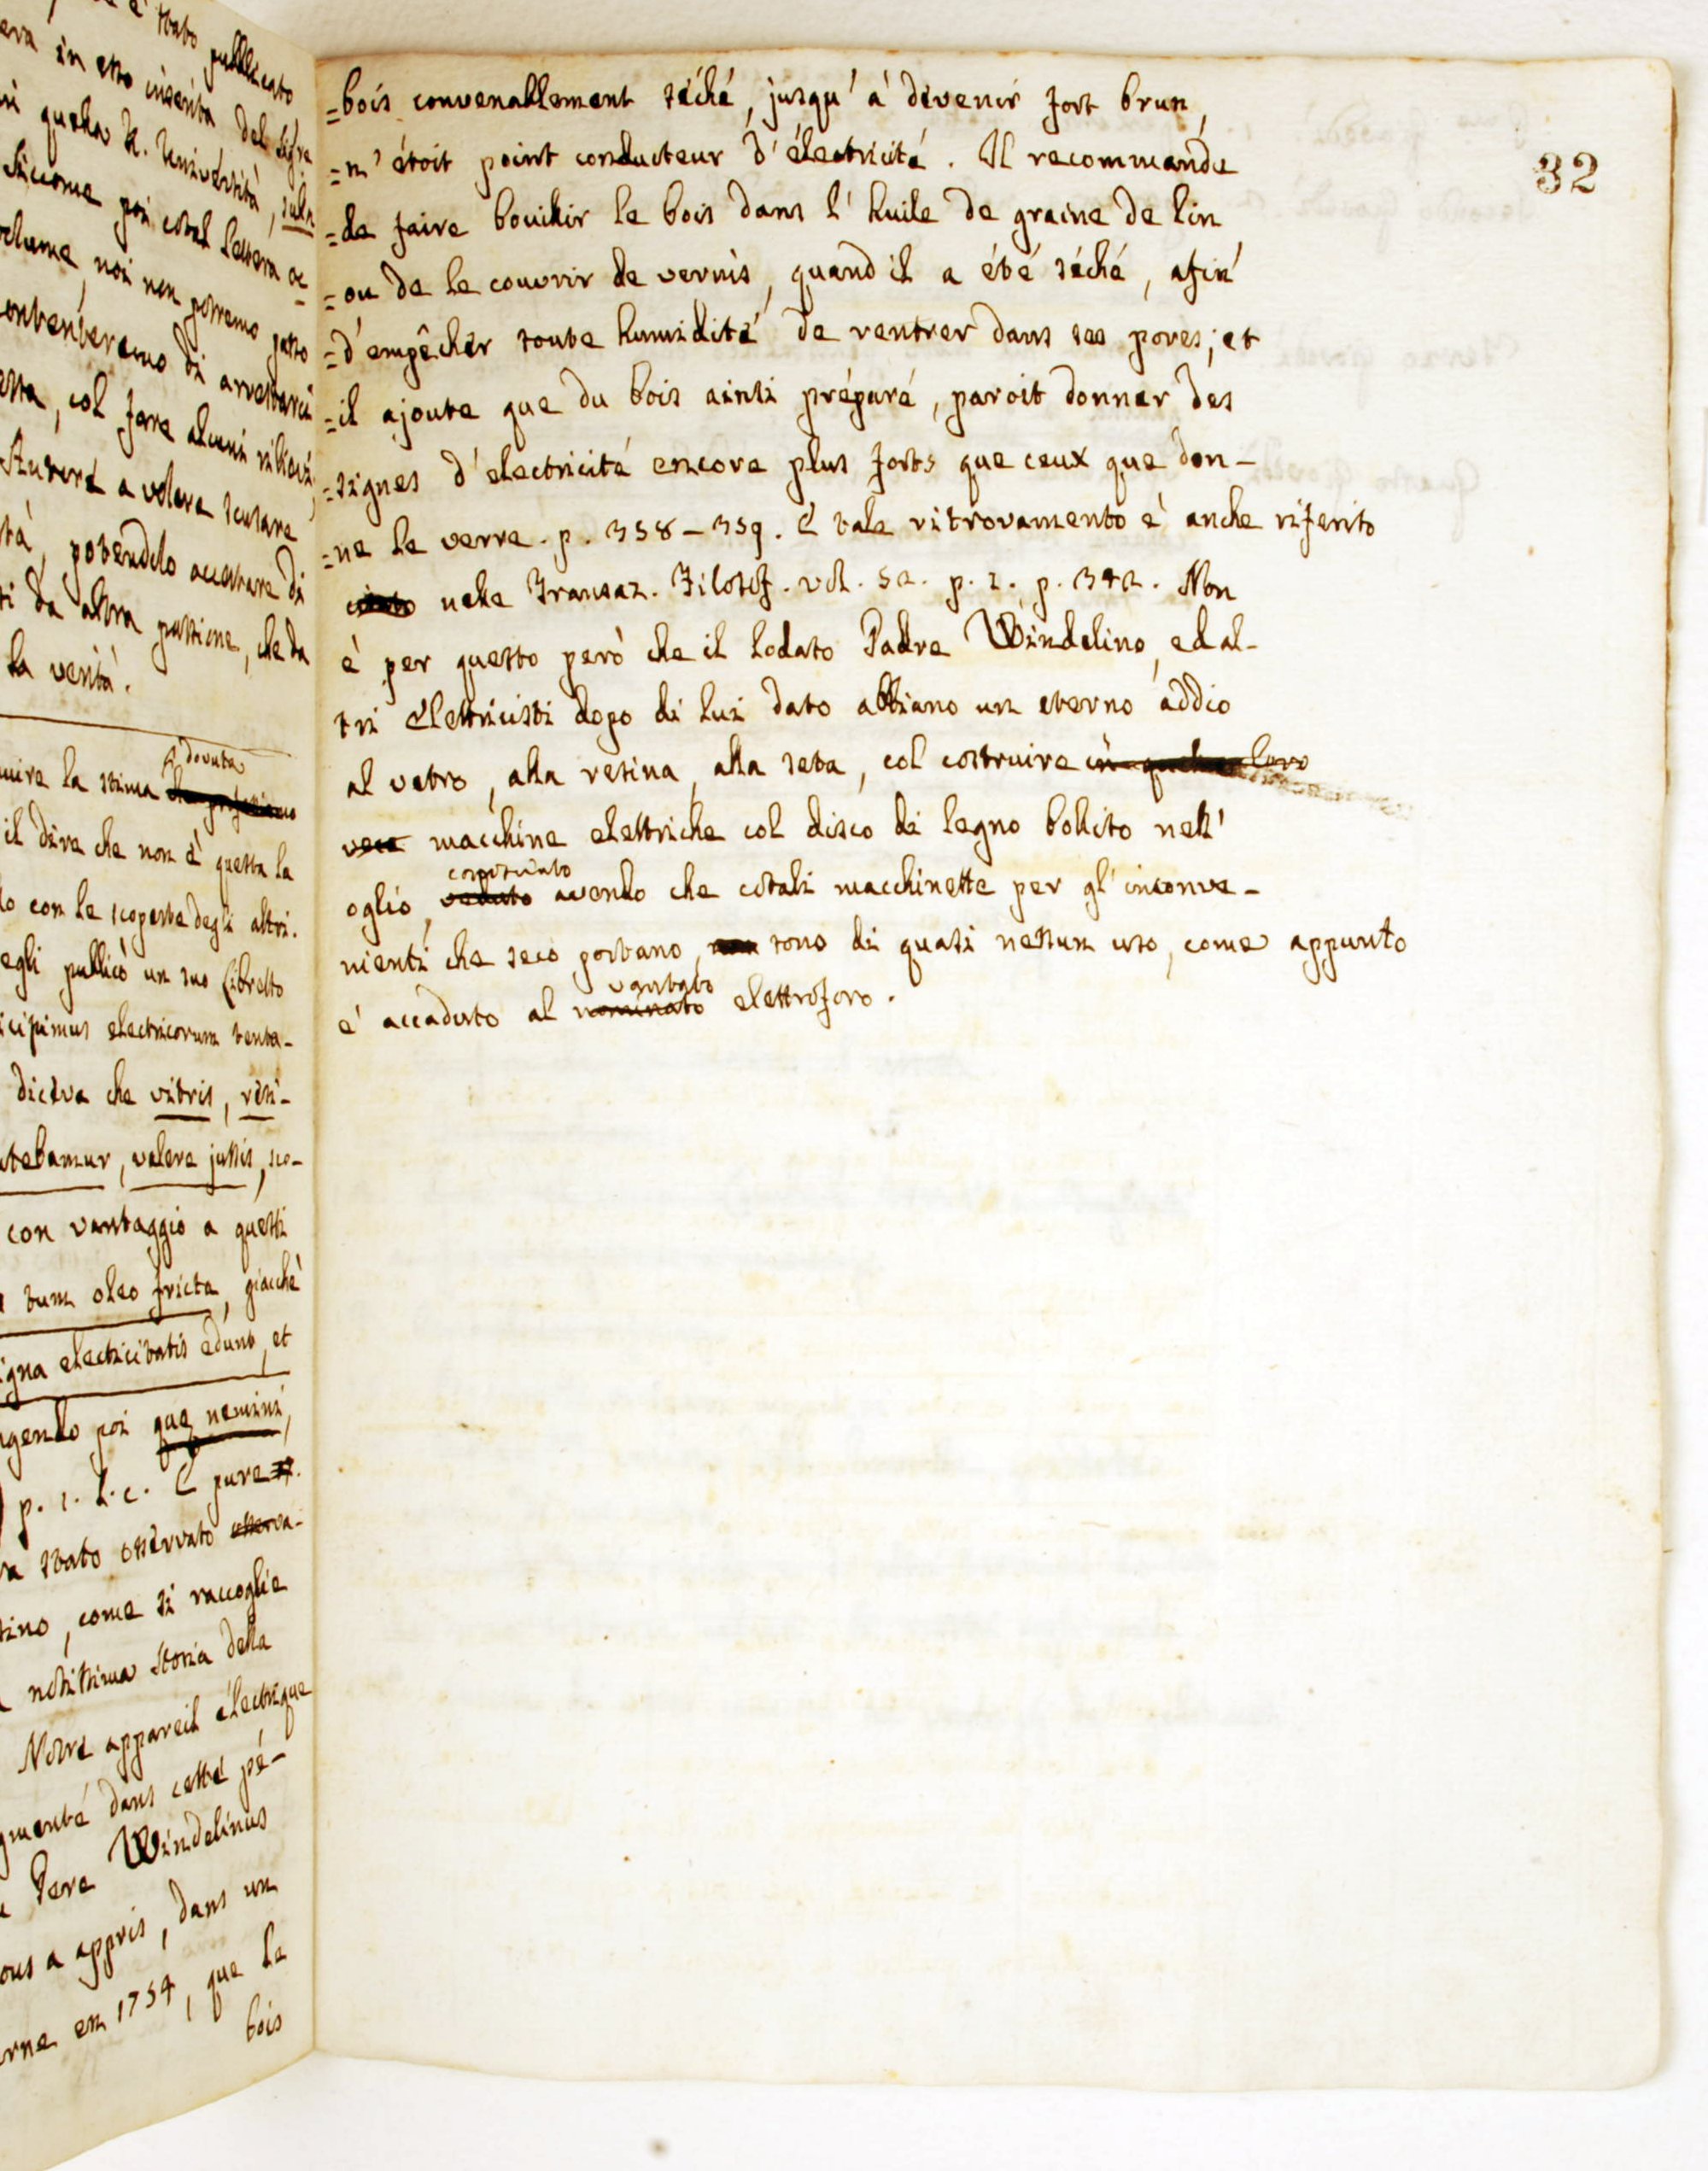 è stato pubblicato
era in esso inserita del Sigre
quella R. Università,
Siccome poi cotal lettera
volume, noi non potremo
contenteremo di arrestarci
col fare alcuni rilievi,
a volere scusare
tà, potendolo accertare di
da altra passione, che da
la verità.
dovuta
nuire la stima
il dire che non è questa la
lo con le scoperte degli altri.
egli pubblicò un suo Libretto
icipimus electricorum tenta-
diceva che vitris, resi-
utebamur, valere jussis, sco-
con vantaggio a questi
tum oleo fricta, giacchè
igna electricitatis edunt, et
ngendo poi que nemini,
p. 1. l. c. E pure
va stato osservato osserva-
tino, come si raccoglie
notissima storia della
Notre appareil électrique
gmenté dans cette pé-
Pere Windelinus
ous a appris, dans un
erne en 1754, que le
bois
32
=bois convenablement séché, jusqu'à devenir fort brun,
=n'étoit point conducteur d'électricité. Il recommande
=de faire bouillir le bois dans l'huile de graine de lin
=ou de le couvrir de vernis, quand il a été séché, afin
=d'empêcher toute humidité de rentrer dans ses pores; et
=il ajoute que du bois ainsi préparé, paroit donner des
=signes d'electricité encore plus forts que ceux que don-
=ne le verre. p. 358-359. E tale ritrovamento è anche riferito
nelle Transaz. Filosof. vol. 52. p. 1. p. 342. Non
è per questo però che il lodato Padre Windelino, ed al-
tri Elettricisti dopo di lui dato abbiano un eterno addio
al vetro, alla resina, alla seta, col costruire in loro
vece macchine elettriche col disco di legno bollito nell'
conosciuto
oglio, veduto avendo che cotali macchinette per gl'inconve-
nienti che seco portano, non sono di quasi nessun uso, come appunto
vantato
è accaduto al nominato elettroforo.